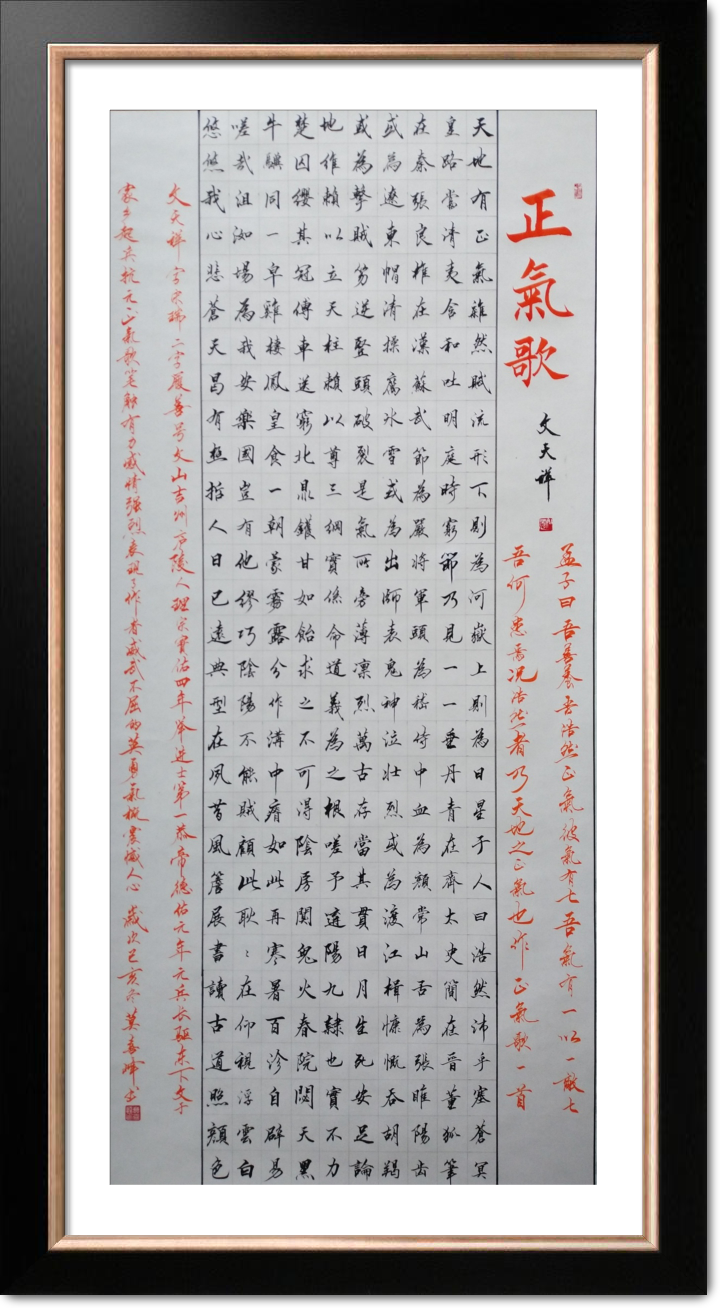 正氣歌
文天祥
孟子曰吾善養吾浩然正氣彼氣有七吾氣有一以一敵七
吾何患焉況浩然者乃天地之正氣也作正氣歌一首
天地有正氣雜然賦流形下則為河嶽上則為日星于人曰浩然沛乎塞蒼冥
皇路當清夷含和吐明庭時窮節乃見一一垂丹青在齊太史簡在晉董狐筆
在秦張良椎在漢蘇武節為嚴將軍頭為嵇侍中血為顏常山舌為張睢陽齒
或為遼東帽清操厲冰雪或為出師表鬼神泣壯烈或為渡江楫慷慨吞胡羯
或為擊賊笏逆豎頭破裂是氣所旁薄凜烈萬古存當其貫日月生死安足論
地維賴以立天柱賴以尊三綱實係命道義為之根嗟予遘陽九隸也實不力
楚囚纓其冠傳車送窮北鼎鑊甘如飴求之不可得陰房闃鬼火春院閟天黑
牛驥同一皁雞棲鳳皇食一朝蒙霧露分作溝中瘠如此再寒暑百沴自辟易
嗟哉沮洳場為我安樂國豈有他繆巧陰陽不能賊顧此耿〻在仰視浮雲白
悠悠我心悲蒼天曷有極哲人日已遠典型在夙昔風簷展書讀古道照顏色
文天祥字宋瑞二字履善号文山吉州庐陵人理宗寶祐四年举進士第一恭帝德祐元年元兵长驱东下文于
家乡起兵抗元正氣歌笔触有力感情强烈表現了作者威武不屈的英勇氣概震憾人心 歲次己亥冬莫喜峰书